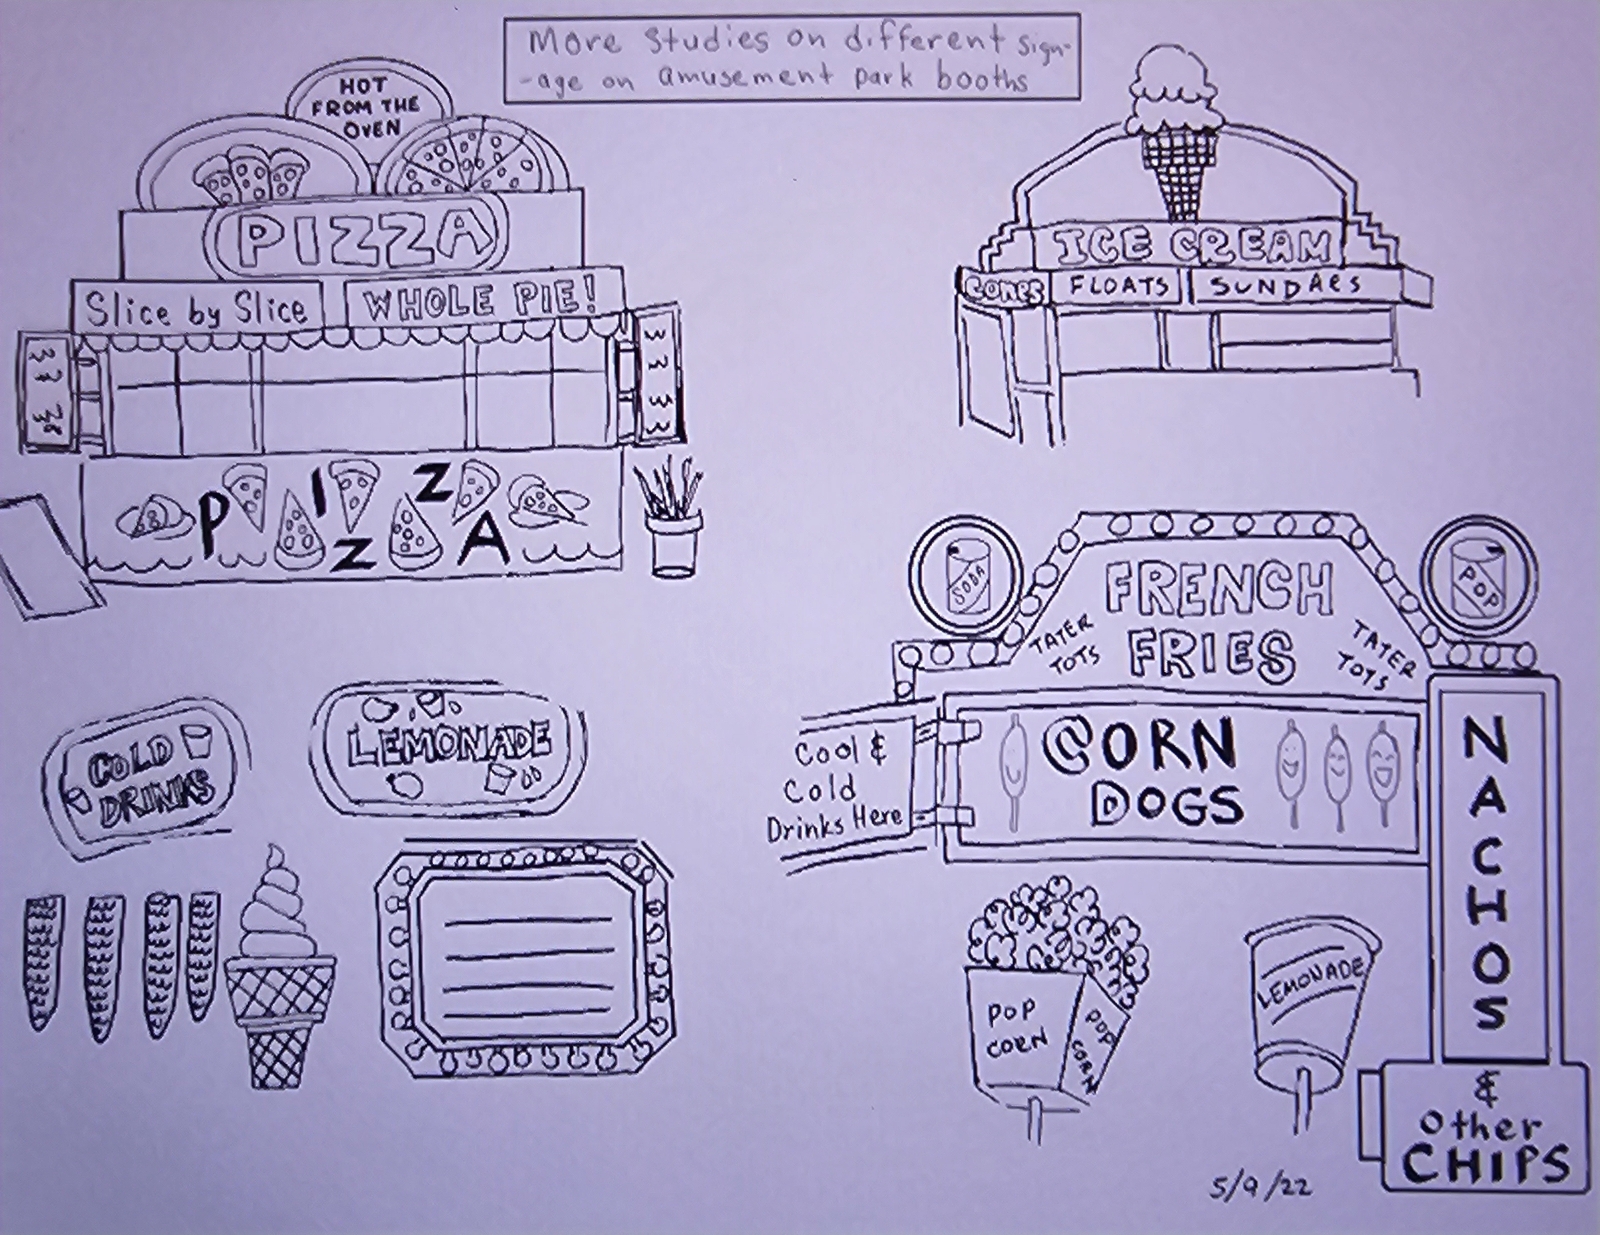 More studies on different sign-
-age on amusement park booths
HOT
FROM THE
OVEN
PIZZA
Slice by Slice
WHOLE PIE!
PIZZA
ICE CREAM
CONES
FLOATS
SUNDAES
SODA
POP
FRENCH
FRIES
TATER
TOTS
TATER
TOTS
Cool &
Cold
Drinks Here
CORN
DOGS
NACHOS
&
Other
CHIPS
COLD
DRINKS
LEMONADE
POP
CORN
POP
CORN
LEMONADE
5/9/22